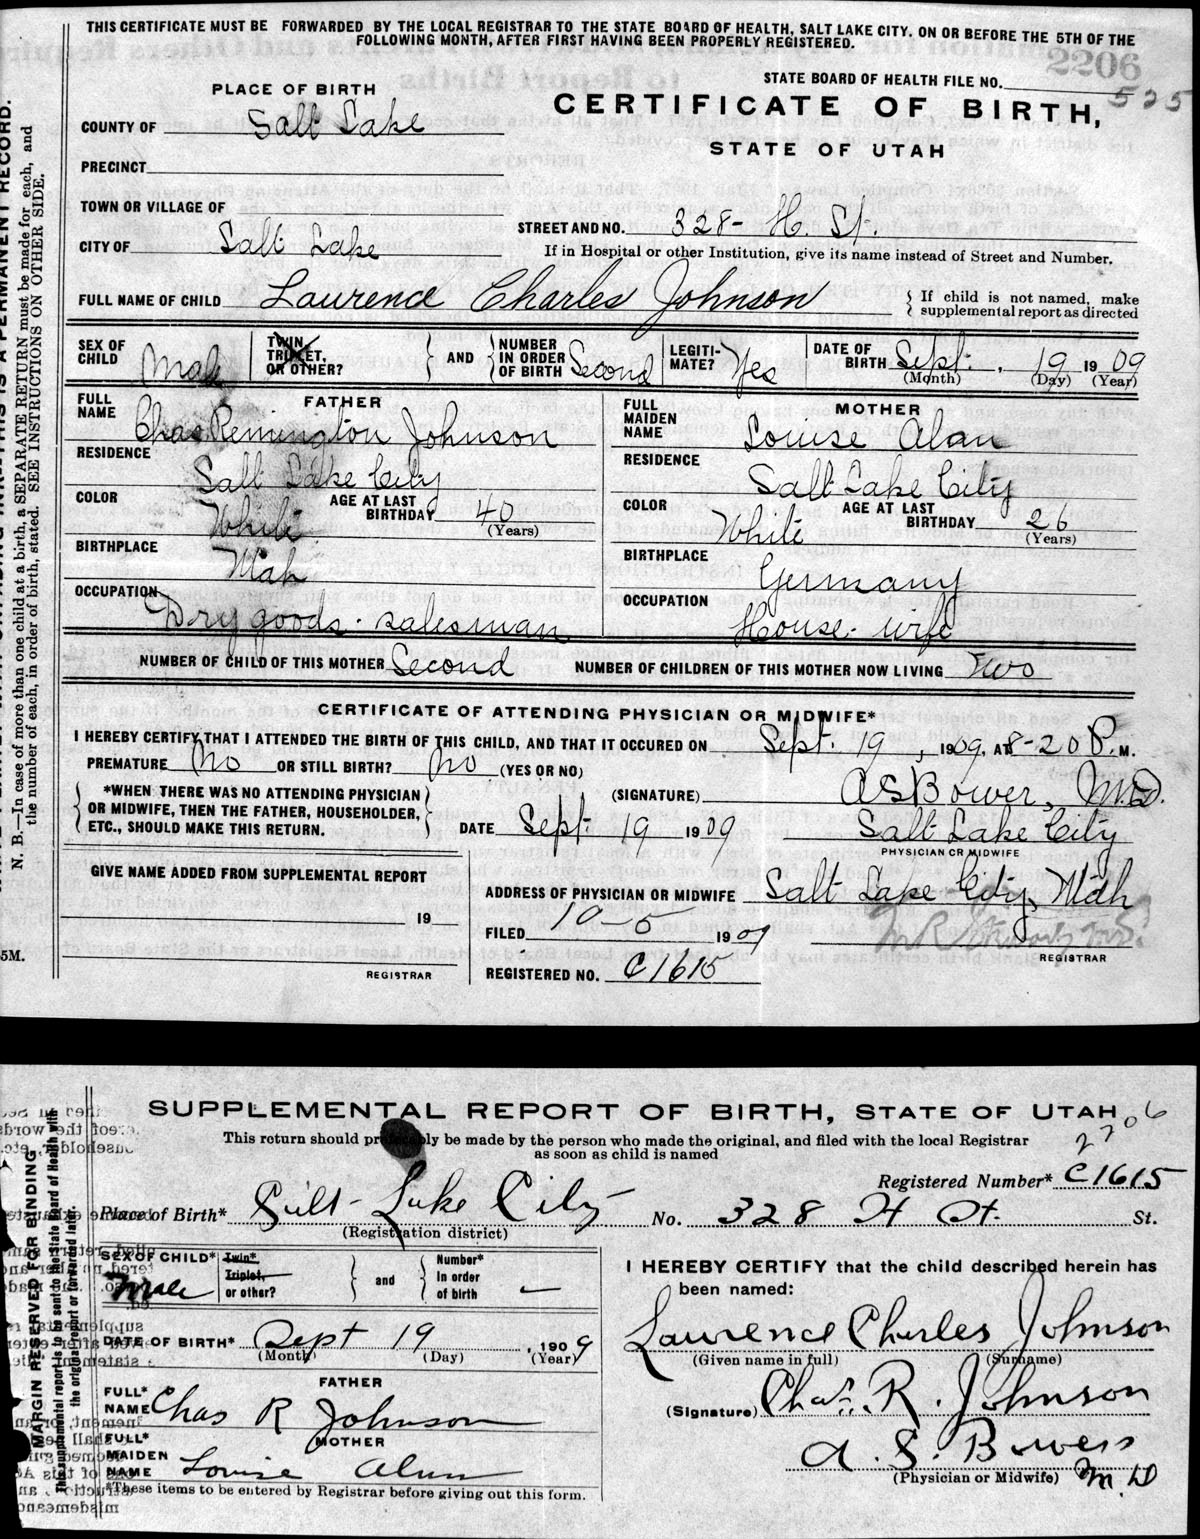 THIS CERTIFICATE MUST BE FORWARDED BY THE LOCAL REGISTRAR TO THE STATE BOARD OF HEALTH, SALT LAKE CITY, ON OR BEFORE THE 5TH OF THE
FOLLOWING MONTH, AFTER FIRST HAVING BEEN PROPERLY REGISTERED.
2206
STATE BOARD OF HEALTH FILE NO. 525
PLACE OF BIRTH
CERTIFICATE OF BIRTH,
COUNTY OF Salt Lake
STATE OF UTAH
PRECINCT
TOWN OR VILLAGE OF
STREET AND NO. 328- H. St.
CITY OF Salt Lake
If in Hospital or other Institution, give its name instead of Street and Number.
FULL NAME OF CHILD Laurence Charles Johnson { If child is not named, make
supplemental report as directed
SEX OF CHILD Male
TWIN, TRIPLET, OR OTHER? } AND { NUMBER IN ORDER OF BIRTH Second
LEGITIMATE? Yes
DATE OF BIRTH Sept. 19 1909
(Month) (Day) (Year)
FATHER
FULL NAME Chas Remington Johnson
RESIDENCE Salt Lake City
COLOR White AGE AT LAST BIRTHDAY 40 (Years)
BIRTHPLACE Utah
OCCUPATION Dry goods. salesman
MOTHER
FULL MAIDEN NAME Louise Alan
RESIDENCE Salt Lake City
COLOR White AGE AT LAST BIRTHDAY 26 (Years)
BIRTHPLACE Germany
OCCUPATION House. wife
NUMBER OF CHILD OF THIS MOTHER Second NUMBER OF CHILDREN OF THIS MOTHER NOW LIVING Two
CERTIFICATE OF ATTENDING PHYSICIAN OR MIDWIFE*
I HEREBY CERTIFY THAT I ATTENDED THE BIRTH OF THIS CHILD, AND THAT IT OCCURED ON Sept. 19, 1909, AT 8-20 P.M.
PREMATURE No OR STILL BIRTH? No (YES OR NO)
{ *WHEN THERE WAS NO ATTENDING PHYSICIAN
OR MIDWIFE, THEN THE FATHER, HOUSEHOLDER,
ETC., SHOULD MAKE THIS RETURN. }
(SIGNATURE) A S Bower, M.D.
DATE Sept. 19 1909 Salt Lake City
PHYSICIAN OR MIDWIFE
GIVE NAME ADDED FROM SUPPLEMENTAL REPORT
19
REGISTRAR
ADDRESS OF PHYSICIAN OR MIDWIFE Salt Lake City, Utah
FILED 10-5 1909
REGISTRAR
REGISTERED NO. C1615
5M.
N. B.—In case of more than one child at a birth, a SEPARATE RETURN must be made for each, and
the number of each, in order of birth, stated. SEE INSTRUCTIONS ON OTHER SIDE.
SUPPLEMENTAL REPORT OF BIRTH, STATE OF UTAH
2206
This return should preferably be made by the person who made the original, and filed with the local Registrar
as soon as child is named
Registered Number* C1615
Place of Birth* Salt Lake City No. 328 H St. St.
(Registration district)
SEX OF CHILD* Male
Twin* Triplet, or other? } and { Number* In order of birth —
DATE OF BIRTH* Sept 19, 1909
(Month) (Day) (Year)
FATHER
FULL* NAME Chas R Johnson
MOTHER
FULL* MAIDEN NAME Louise Alan
*These items to be entered by Registrar before giving out this form.
I HEREBY CERTIFY that the child described herein has
been named:
Laurence Charles Johnson
(Given name in full) (Surname)
(Signature) Chas. R. Johnson
A. S. Bowers
(Physician or Midwife) M.D
MARGIN RESERVED FOR BINDING
This supplemental report is to be sent to the State Board of Health with
the original report or forwarded later.